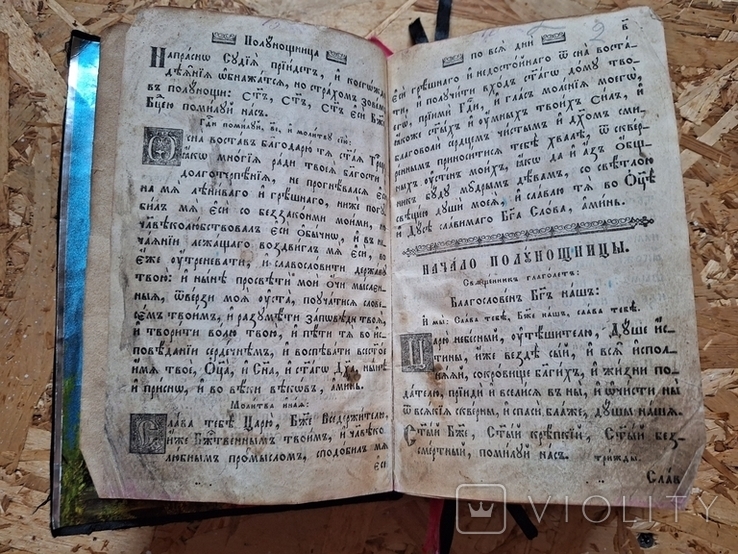 Полунощница
Напраснѡ Судїѧ прїидетъ, и коегѡждо
дѣѧнїѧ ѡбнажатсѧ, но страхомъ зовемъ
въ полунощи: Ст҃ъ, Ст҃ъ, Ст҃ъ Еси Бж҃е
Бц҃ею помилуй насъ.
Гдⷭ҇и помилуй, в҃і, и молитву сїю:
Ѿ сна востав благодарю тѧ ст҃аѧ Трⷪ҇це,
ѩкѡ многїѧ ради твоеѧ благости, и
долготерпѣнїѧ, не прогнѣвалсѧ Еси
на мѧ лѣниваго и грѣшнаго, ниже погу-
билъ мѧ Еси со беззаконми моими, но
ч҃лвѣколюбствовалъ Еси Обычнѡ, и в не-
чаѧнїи лежащаго воздвиглъ мѧ Еси, во
Еже оутреневати, и славословити державу
твою: и нынѣ просвѣти мои Очи мыслен-
ныѧ, ѿверзи моѧ оуста, поучатисѧ слове-
сѣмъ твоимъ, и разумѣти заповѣди твоѧ,
и творити волю твою, и пѣти тѧ во ис-
повѣданїи сердечнѣмъ, и воспѣвати всест҃ое
имѧ твое, Оц҃а, и Сн҃а, и ст҃агѡ Дх҃а, нынѣ
и приснѡ, и во вѣки вѣкѡвъ, аминь.
Молитва инаѧ:
Слава тебѣ Царю, Бж҃е Вседержителю,
ѩкѡ Бжⷭ҇твеннымъ твоимъ, и ч҃лвѣко-
любнымъ промысломъ, сподобилъ мѧ
Еси
по всѧ дни
в҃
Еси грѣшнаго и недостойнаго ѿ сна воста-
ти, и получити входъ ст҃агѡ дому твое-
гѡ, прїими Гдⷭ҇и, и гласъ моленїѧ моегѡ,
ѩкоже ст҃ыхъ и оумныхъ твоихъ Силъ, и
благоволи сердцемъ чистымъ и дх҃омъ сми-
реннымъ приноситисѧ тебѣ хвалѣ, ѿ сквер-
ныхъ оустнъ моихъ, ѩкѡ да и азъ Общ-
никъ буду мудрымъ дѣвамъ, со свѣтлою
свѣщею души моеѧ, и славлю тѧ во Оц҃ѣ
и Дусѣ славимаго Бг҃а Слова, аминь.
Начало Полунощницы.
Свѧщенникъ глаголетъ:
Благословенъ Бг҃ъ нашъ:
И мы: Слава тебѣ, Бж҃е нашъ, слава тебѣ.
Царю небесный, оутѣшителю, Душе ис-
тины, иже вездѣ сый, и всѧ испол-
нѧѧй, сокровище благихъ, и жизни по-
дателю, прїиди и вселисѧ в ны, и ѡчисти ны
ѿ всѧкїѧ скверны, и спаси блаже, душы нашѧ.
Ст҃ый Бж҃е, Ст҃ый крѣпкїй, Ст҃ый без-
смертный, помилуй насъ. трижды.
Слав
VIOLITY